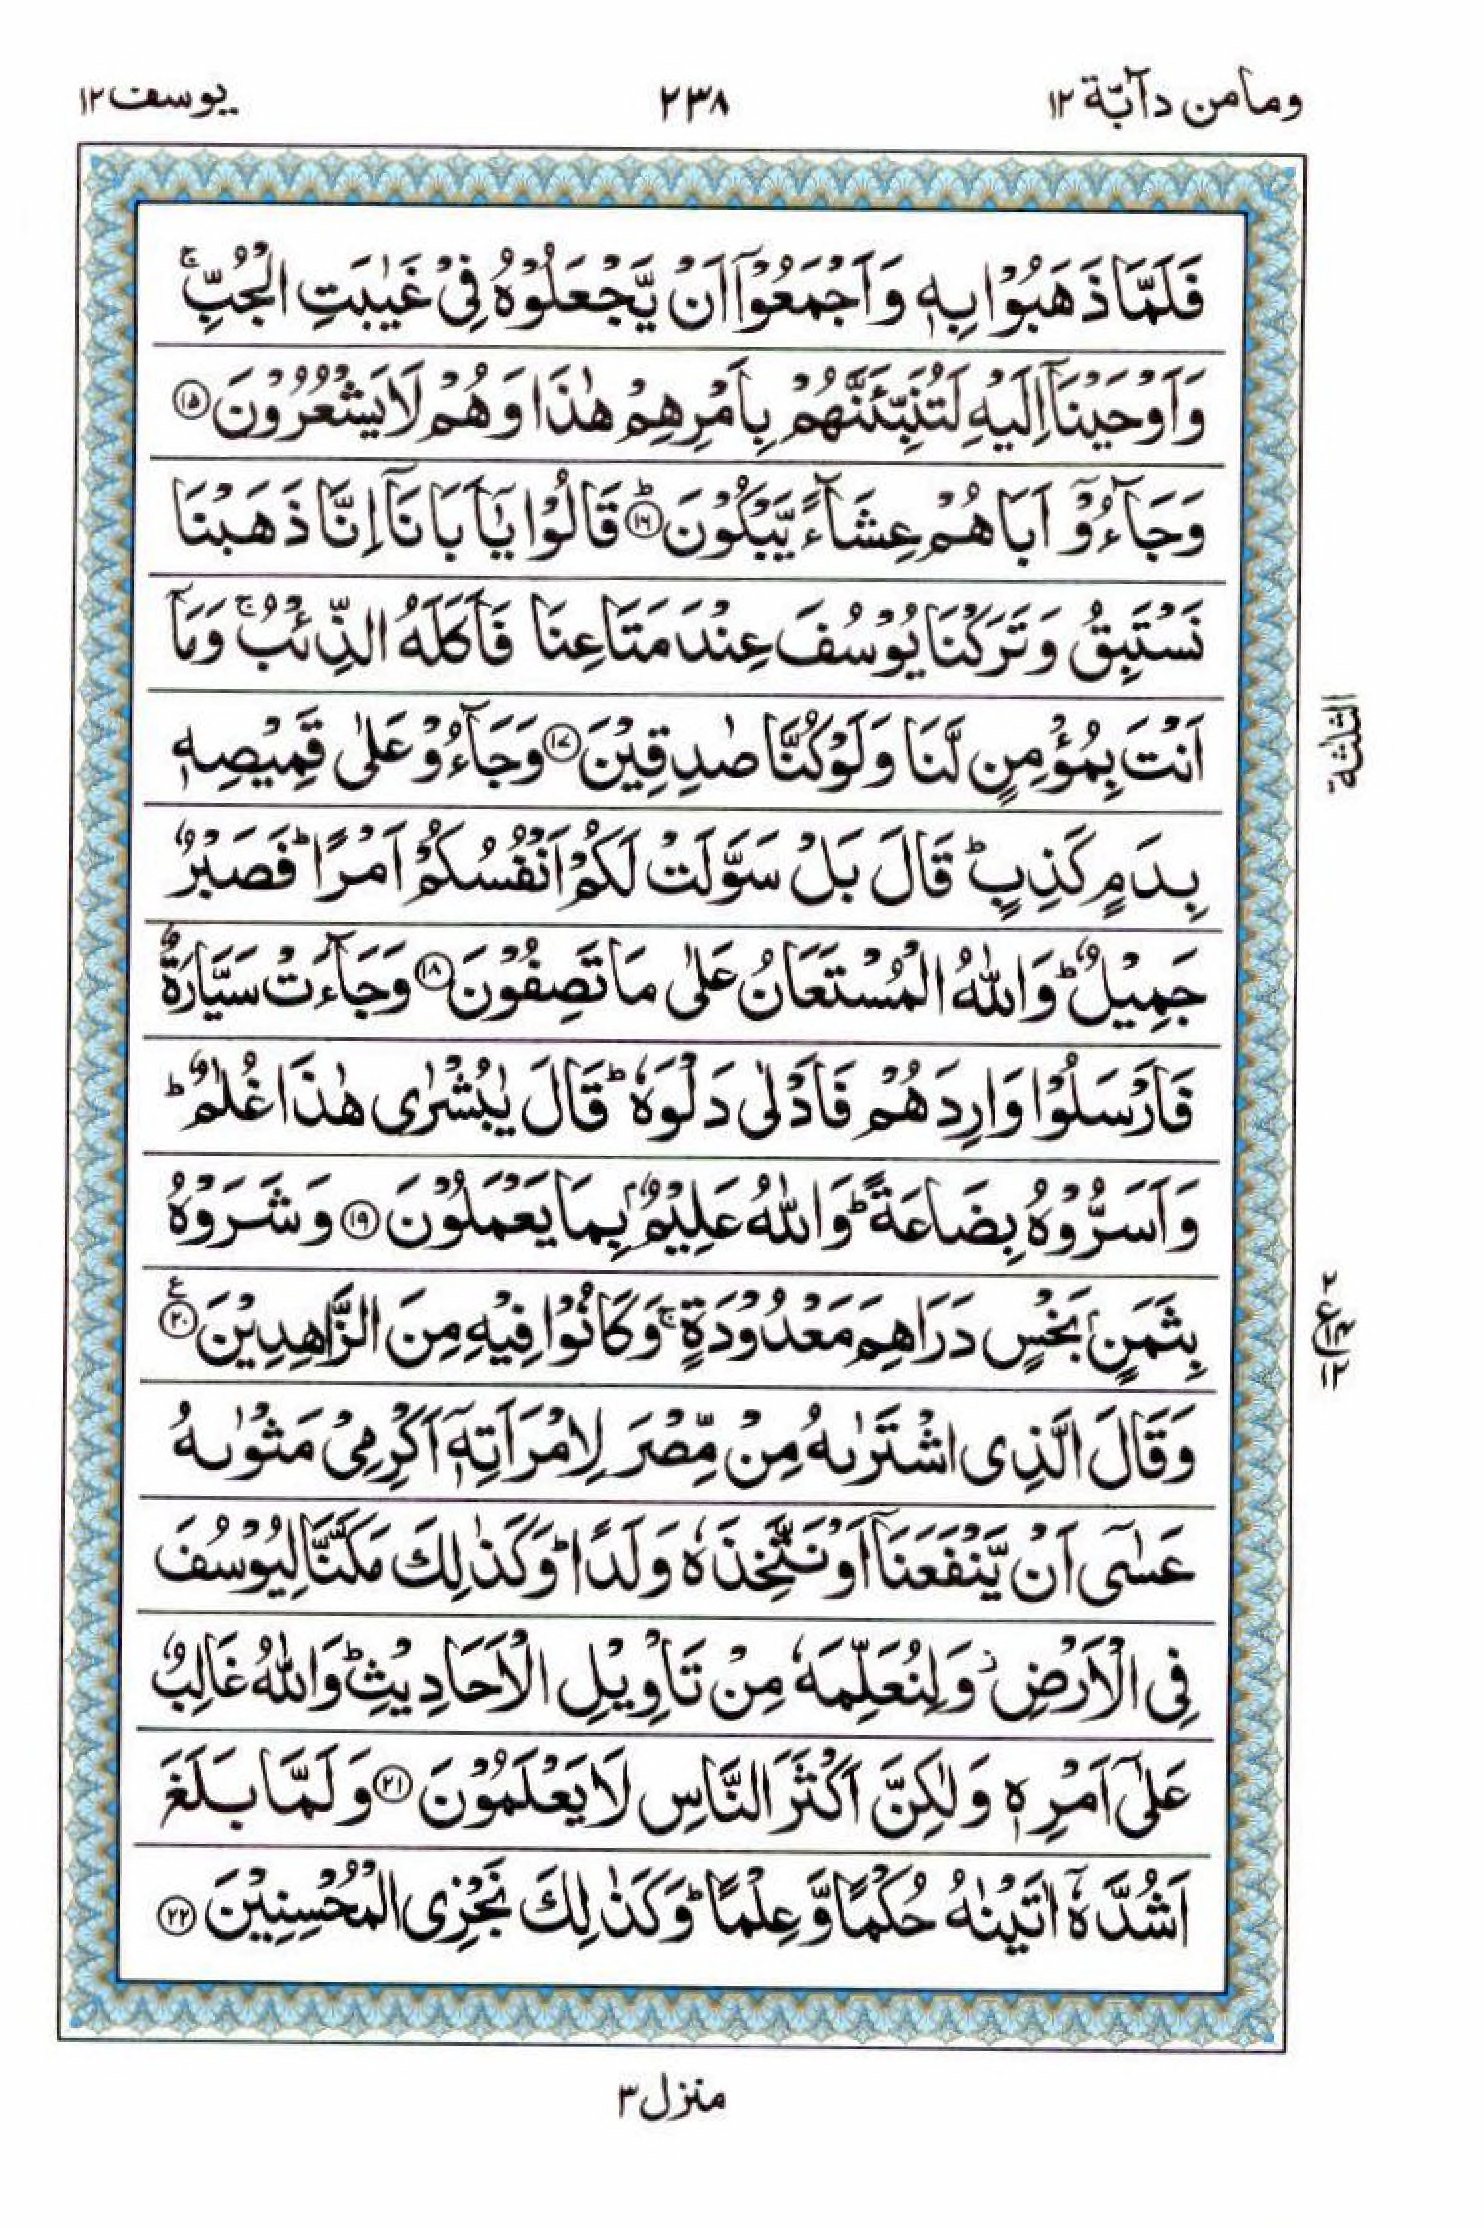 ومامن دآبّة ١٢
٢٣٨
يوسف ١٢
فَلَمَّا ذَهَبُوْا بِهٖ وَاَجْمَعُوْۤا اَنْ يَّجْعَلُوْهُ فِيْ غَيٰبَتِ الْجُبِّ ۚ
وَاَوْحَيْنَاۤ اِلَيْهِ لَتُنَبِّئَنَّهُمْ بِاَمْرِهِمْ هٰذَا وَهُمْ لَا يَشْعُرُوْنَ ⑮
وَجَآءُوْۤ اَبَاهُمْ عِشَآءً يَّبْكُوْنَ ؕ⑯ قَالُوْا يٰۤاَبَانَاۤ اِنَّا ذَهَبْنَا
نَسْتَبِقُ وَتَرَكْنَا يُوْسُفَ عِنْدَ مَتَاعِنَا فَاَكَلَهُ الذِّئْبُ ۚ وَمَاۤ
اَنْتَ بِمُؤْمِنٍ لَّنَا وَلَوْ كُنَّا صٰدِقِيْنَ ⑰ وَجَآءُوْ عَلٰى قَمِيْصِهٖ
بِدَمٍ كَذِبٍ ؕ قَالَ بَلْ سَوَّلَتْ لَكُمْ اَنْفُسُكُمْ اَمْرًا ؕ فَصَبْرٌ
جَمِيْلٌ ؕ وَاللّٰهُ الْمُسْتَعَانُ عَلٰى مَا تَصِفُوْنَ ⑱ وَجَآءَتْ سَيَّارَةٌ
فَاَرْسَلُوْا وَارِدَهُمْ فَاَدْلٰى دَلْوَهٗ ؕ قَالَ يٰبُشْرٰى هٰذَا غُلٰمٌ ؕ
وَاَسَرُّوْهُ بِضَاعَةً ؕ وَاللّٰهُ عَلِيْمٌۢ بِمَا يَعْمَلُوْنَ ⑲ وَشَرَوْهُ
بِثَمَنٍۢ بَخْسٍ دَرَاهِمَ مَعْدُوْدَةٍ ۚ وَكَانُوْا فِيْهِ مِنَ الزَّاهِدِيْنَ ⑳ ع
وَقَالَ الَّذِى اشْتَرٰىهُ مِنْ مِّصْرَ لِامْرَاَتِهٖۤ اَكْرِمِيْ مَثْوٰىهُ
عَسٰۤى اَنْ يَّنْفَعَنَاۤ اَوْ نَتَّخِذَهٗ وَلَدًا ؕ وَكَذٰلِكَ مَكَّنَّا لِيُوْسُفَ
فِى الْاَرْضِ ؗ وَلِنُعَلِّمَهٗ مِنْ تَاْوِيْلِ الْاَحَادِيْثِ ؕ وَاللّٰهُ غَالِبٌ
عَلٰۤى اَمْرِهٖ وَلٰكِنَّ اَكْثَرَ النَّاسِ لَا يَعْلَمُوْنَ ㉑ وَلَمَّا بَلَغَ
اَشُدَّهٗۤ اٰتَيْنٰهُ حُكْمًا وَّعِلْمًا ؕ وَكَذٰلِكَ نَجْزِى الْمُحْسِنِيْنَ ㉒
الثلٰثة
٢
ع ١٤
١٢
منزل ٣